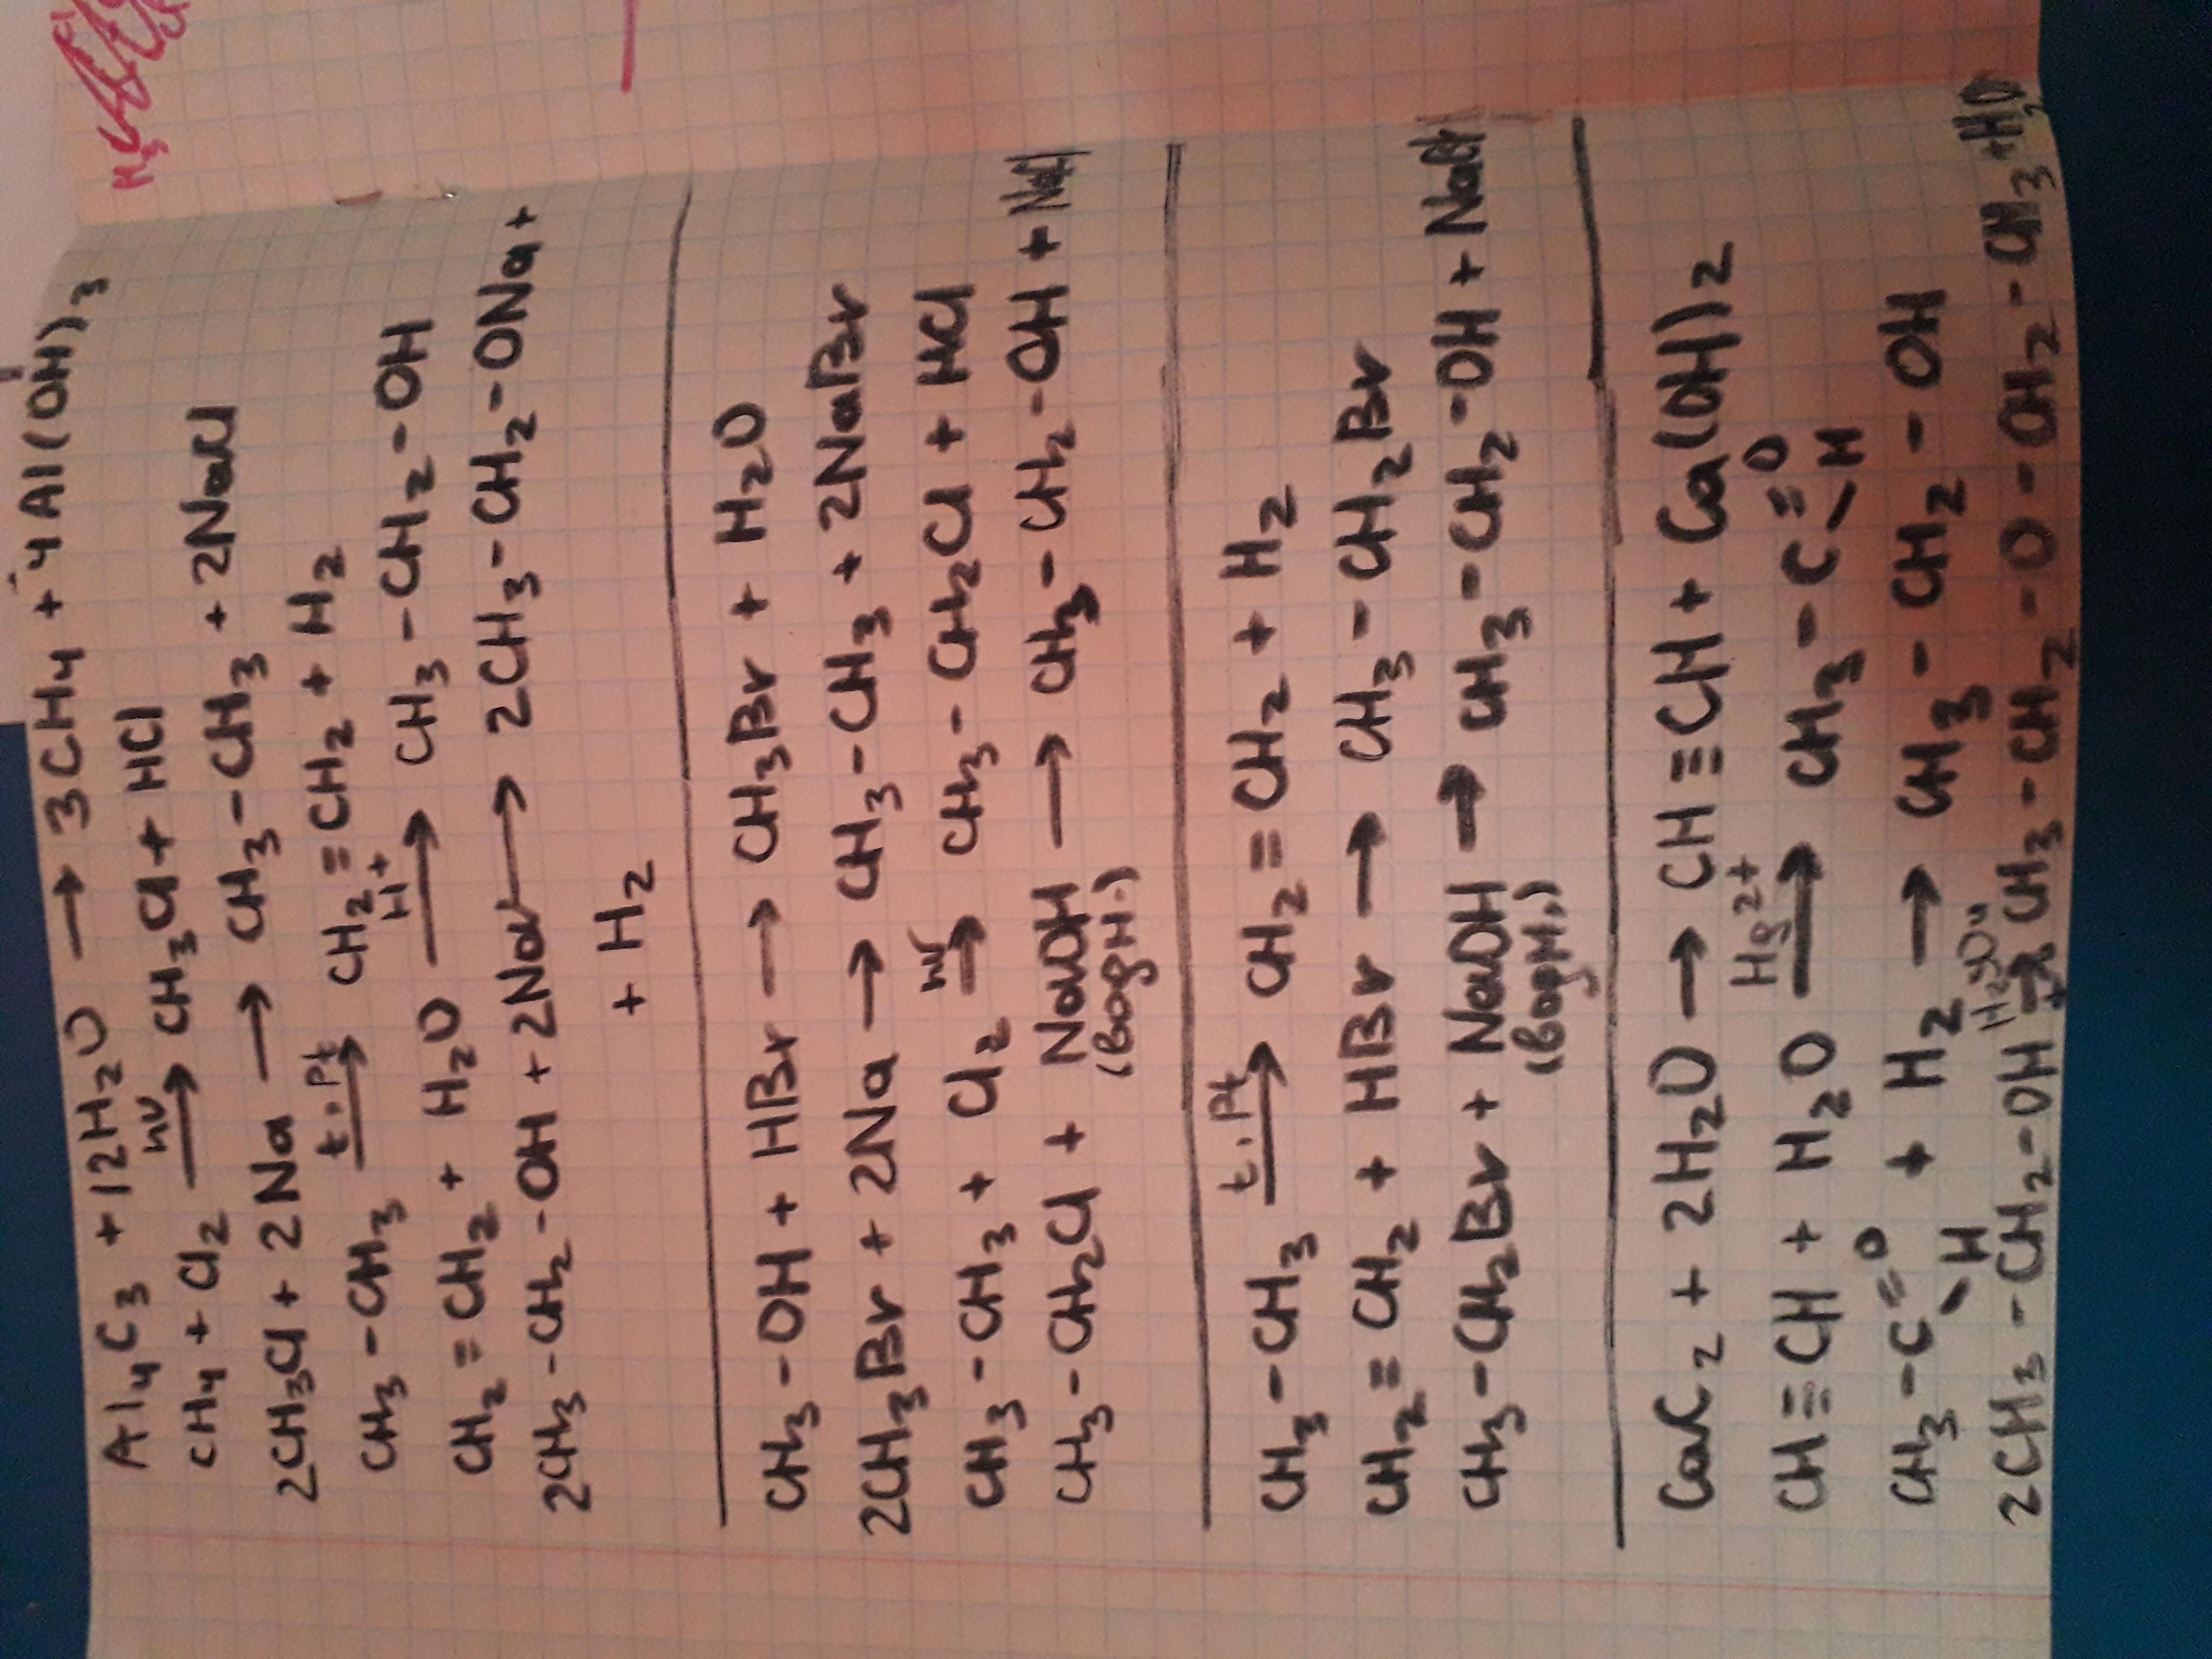 Al₄C₃ + 12H₂O → 3CH₄ + 4Al(OH)₃
CH₄ + Cl₂ →(hν) CH₃Cl + HCl
2CH₃Cl + 2Na → CH₃-CH₃ + 2NaCl
CH₃-CH₃ →(t. Pt) CH₂=CH₂ + H₂
CH₂=CH₂ + H₂O →(H+) CH₃-CH₂-OH
2CH₃-CH₂-OH + 2Na → 2CH₃-CH₂-ONa +
+ H₂
CH₃-OH + HBr → CH₃Br + H₂O
2CH₃Br + 2Na → CH₃-CH₃ + 2NaBr
CH₃-CH₃ + Cl₂ →(hν) CH₃-CH₂Cl + HCl
CH₃-CH₂Cl + NaOH → CH₃-CH₂-OH + NaCl
(водн.)
CH₃-CH₃ →(t. Pt) CH₂=CH₂ + H₂
CH₂=CH₂ + HBr → CH₃-CH₂Br
CH₃-CH₂Br + NaOH → CH₃-CH₂-OH + NaBr
(водн.)
CaC₂ + 2H₂O → CH≡CH + Ca(OH)₂
CH≡CH + H₂O →(Hg²⁺) CH₃-C=O-H
CH₃-C=O-H + H₂ → CH₃-CH₂-OH
2CH₃-CH₂-OH →(H₂SO₄, t) CH₃-CH₂-O-CH₂-CH₃+H₂O